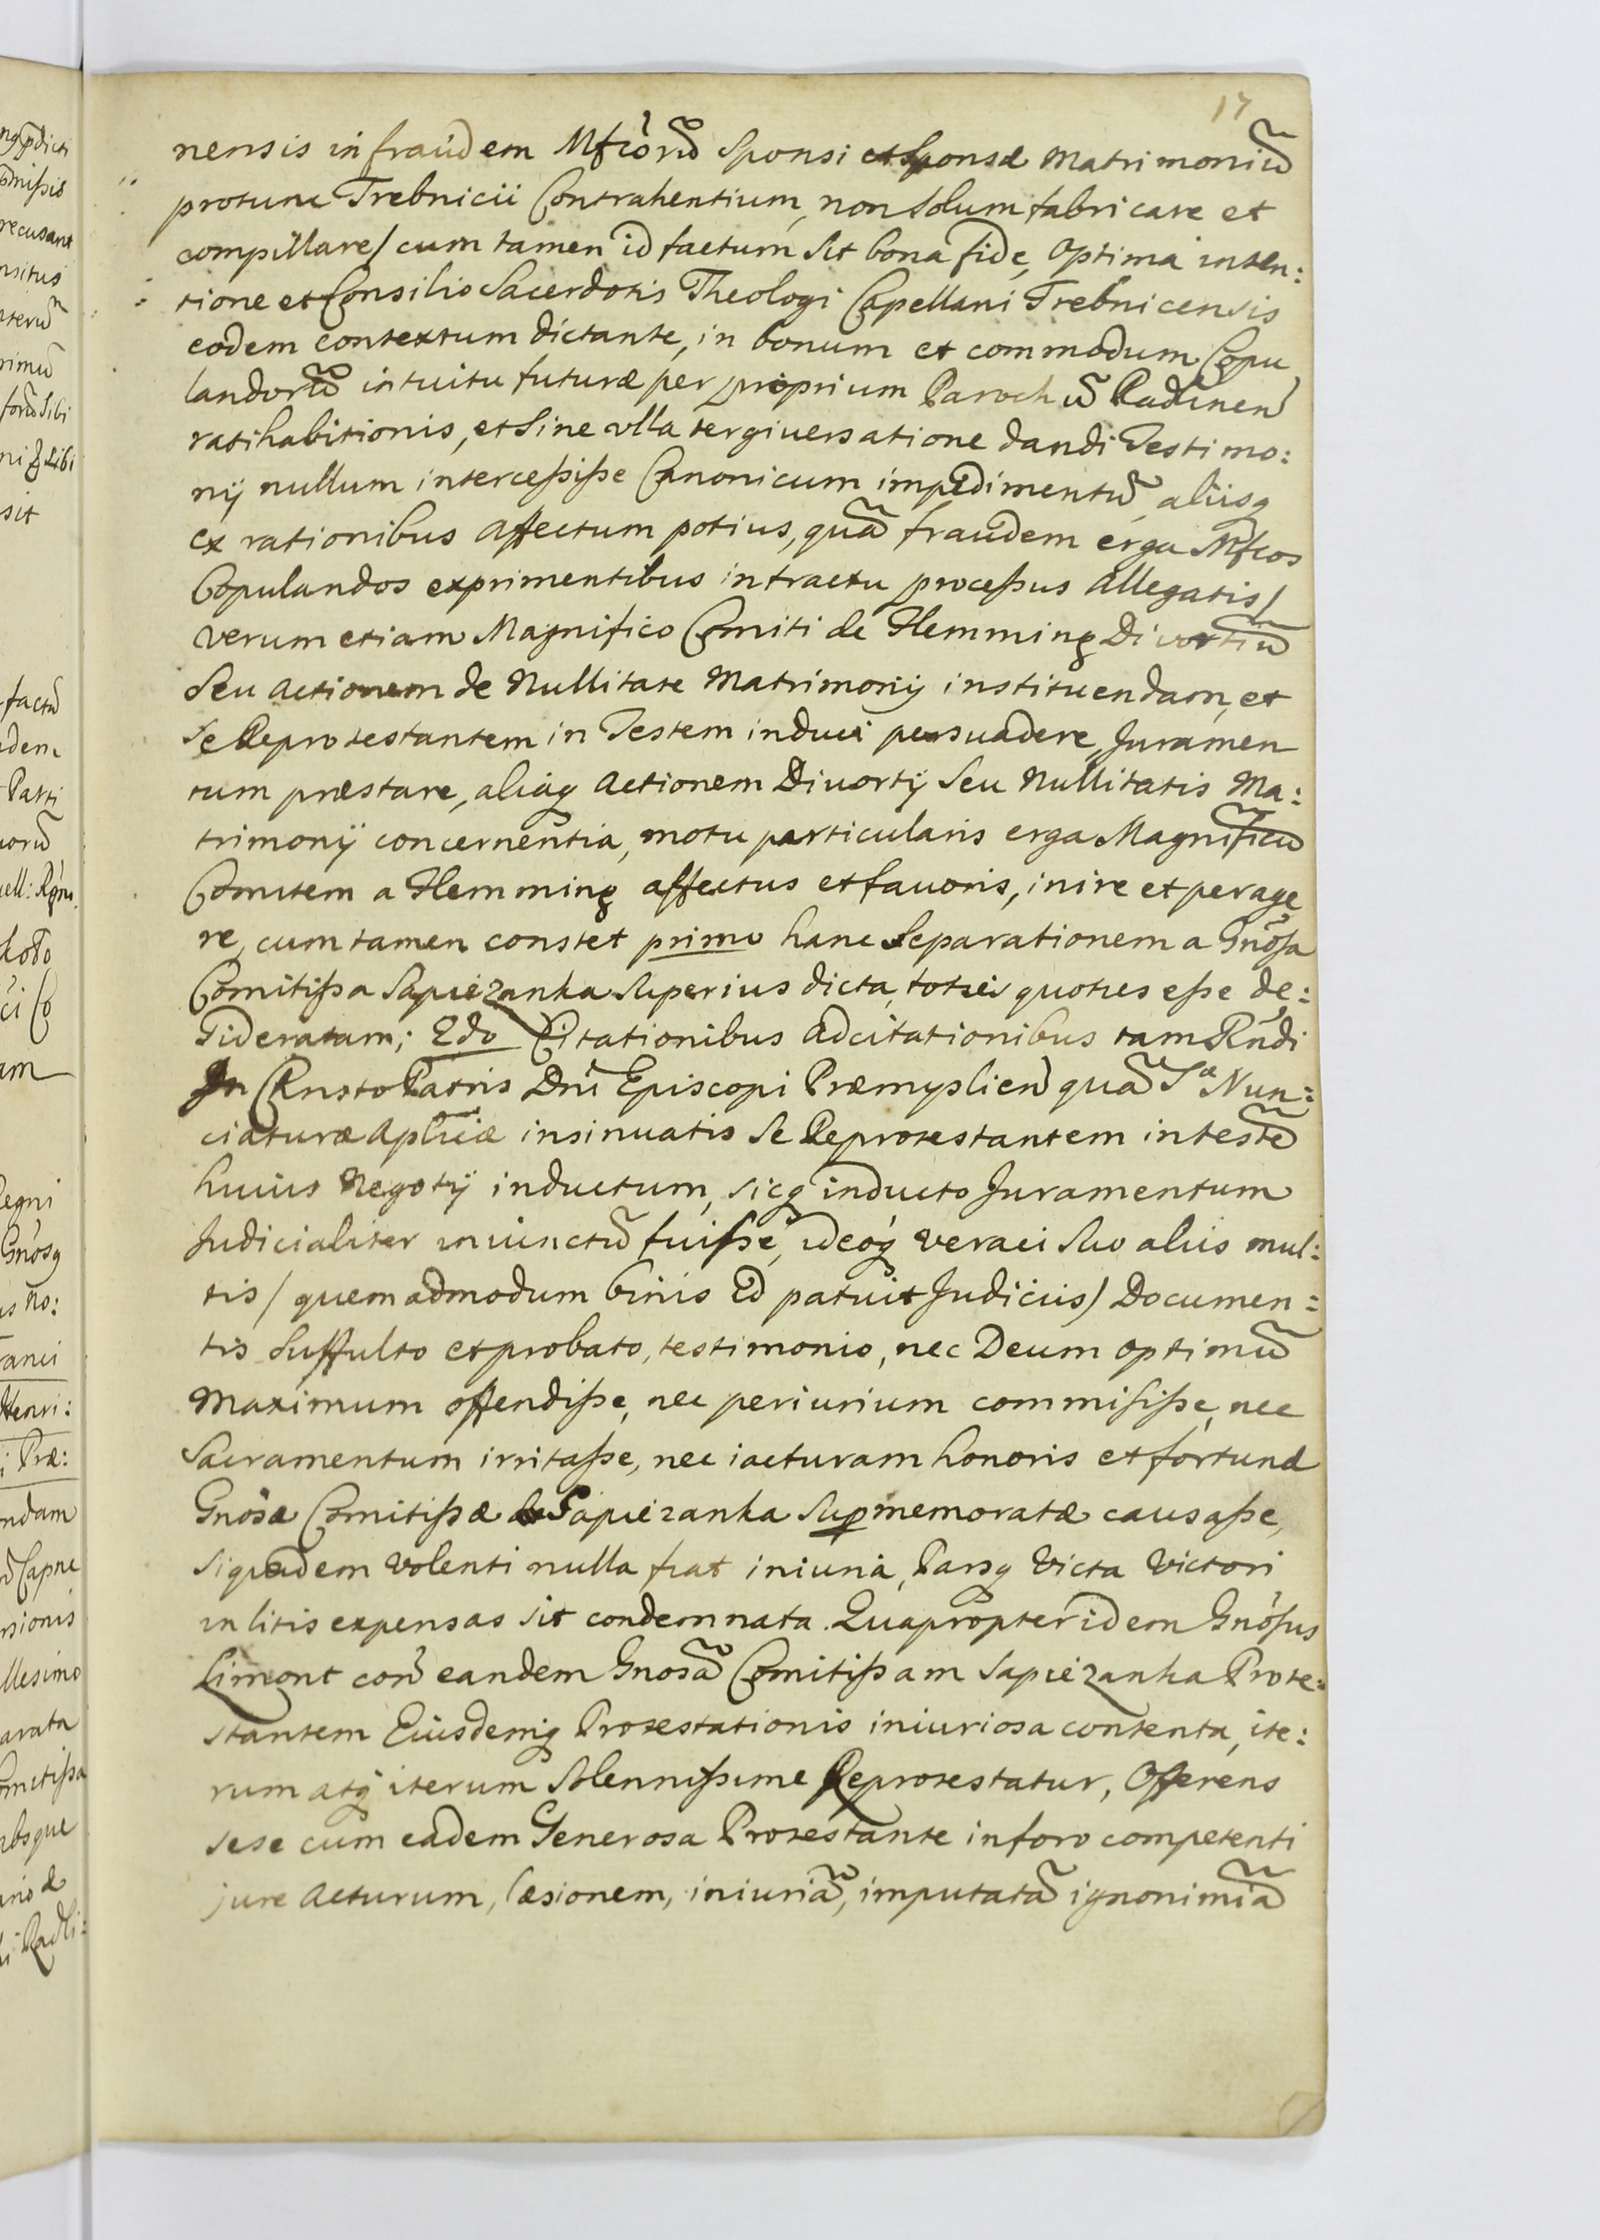 17
nensis in fraudem Mfcorũ Sponsi et Sponsæ Matrimoniũ
protunc Trebnicii Contrahentium, non solum fabricare et
compillare/ cum tamen id factum sit bona fide, optima inten:
tione et Consilio Sacerdotis Theologi Capellani Trebnicensis
eodem contextum dictante, in bonum et commodum Copu
landorũ intuitu futuræ per proprium Parochũ Radinen
ratihabitionis, et sine ulla tergiuersatione dandi Testimo:
nij nullum intercessisse Canonicum impedimentũ, aliisq
ex rationibus affectum potius, quã fraudem erga Mfcos
Copulandos exprimentibus in tractu processus allegatis/
verum etiam Magnifico Comiti de Flemming Divortiũ
seu actionem de Nullitate Matrimonij instituendam, et
se Reprotestantem in Testem induci persuadere, Juramen
tum præstare, aliaq actionem Diuortij seu Nullitatis Ma:
trimonij concernentia, motu particularis erga Magnificũ
Comitem a Flemming affectus et fauoris, inire et perage
re, cum tamen constet primo hanc Separationem a Gnõsa
Comitissa Sapiezanka superius dicta, toties quoties esse de:
sideratam; 2do Citationibus adcitationibus tam Rñdi
In Christo Patris Dni Episcopi Præmyslien quã Sa Nun:
ciaturæ Aplicæ insinuatis se Reprotestantem in testẽ
huius Negotij inductum, sicq inducto Juramentum
Judicialiter iniunctũ fuisse, ideoq veraci suo aliis mul:
tis/ quemadmodum binis id patuit Judiciis/ Documen:
tis suffulto et probato, testimonio, nec Deum optimũ
Maximum offendisse, nec periurium commisisse, nec
Sacramentum irritasse, nec iacturam honoris et fortunæ
Gnõsæ Comitissæ Sapiezanka supmemoratæ causasse,
siquidem volenti nulla fiat iniuria, Parsq victa victori
in litis expensas sit condemnata. Quapropter idem Gnõsus
Limont con eandem Gnosã Comitissam Sapiezanka Prote:
stantem Eiusdemq Protestationis iniuriosa contenta, ite:
rum atq iterum solennissime Reprotestatur, Offerens
sese cum eadem Generosa Protestante in foro competenti
jure acturum, læsionem, iniuriã, imputatã ignonimiã